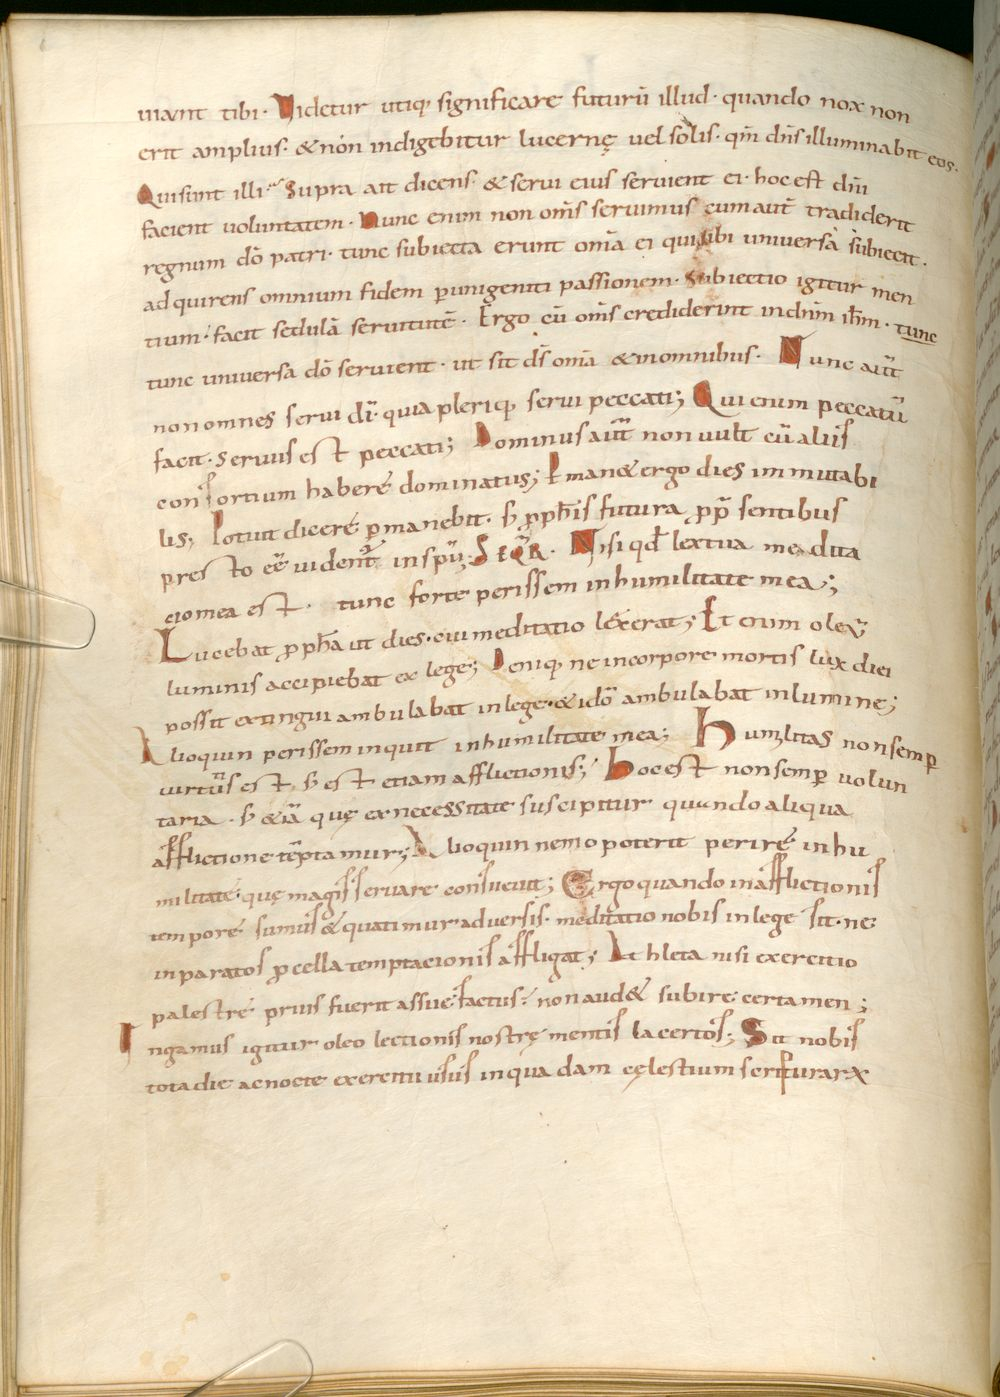 uiant tibi · Videtur utiq; significare futurū illud · quando nox non
erit amplius · & non indigebitur lucernę uel solis · qm̄ dn̄s illuminabit eos ·
Qui sunt illi · Supra ait dicens · & serui eius seruient ei · hoc est dīni
facient uoluntatem · Nunc enim non om̄s seruimus cum aut̄ tradiderit
regnum dō patri · tunc subiecta erunt om̄a ei qui sibi uniuersa subiecit ·
adquirens omnium fidem ꝑ unigeniti passionem · Subiectio igitur men
tium · facit sedulā seruitutē · Ergo cū om̄s crediderint in dn̄m ih̄m · tunc
tunc uniuersa dō seruient · ut sit dś om̄a & in omnibus · Nunc aut̄
non omnes serui dī · quia pleriq; serui peccati; Qui enim peccatū
facit · seruus est peccati; Dominus aut̄ non uult cū aliis
consortium habere dominatus; Pmanet ergo dies immutabi
lis; Potuit dicere ꝑmanebit · s; ꝓph̄is futura ꝓp̄ sentibus
presto eē uident̄ in sp̄u; SEQR · Nisi qđ lex tua medita
cio mea est · tunc forte perissem in humilitate mea;
Lucebat ꝓph̄a ut dies · cui meditatio lex erat; Et enim olexī
luminis accipiebat ex lege; Deniq; ne in corpore mortis lux diei
possit extingui ambulabat in lege · & idō ambulabat in lumine;
Alioquin perissem inquit in humilitate mea; Humilitas non semꝑ
uirtus est s; est etiam afflictionis; Hoc est non semꝑ uolun
taria · s; & iā quę ex necessitate suscipitur quando aliqua
afflictione tēptamur; Alioquin nemo poterit perire in hu
militate quę magis seruare consueuit; Ergo quando in afflictionis
tempore sumus & quatimur aduersis · meditatio nobis in lege sit · ne
inparatos ꝓcella temptacionis affligat; Athleta nisi exercitio
palestre prius fuerit assuefactus · non audet subire certamen;
Ungamus igitur oleo lectionis nostrę mentis lacertos; Sit nobis
tota die ac nocte exercitii usus in quadam cęlestium scripturarꝝ